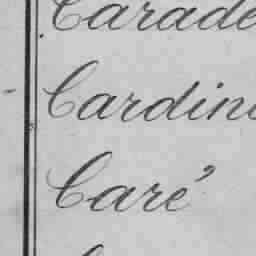 Carade
Cardin
Caré